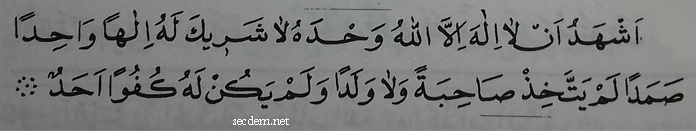 اَشْهَدُ اَنْ لَا اِلٰهَ اِلَّا اللهُ وَحْدَهُ لَا شَرِيكَ لَهُ اِلٰهًا وَاحِدًا
صَمَدًا لَمْ يَتَّخِذْ صَاحِبَةً وَلَا وَلَدًا وَلَمْ يَكُنْ لَهُ كُفُوًا اَحَدٌ
secdem.net